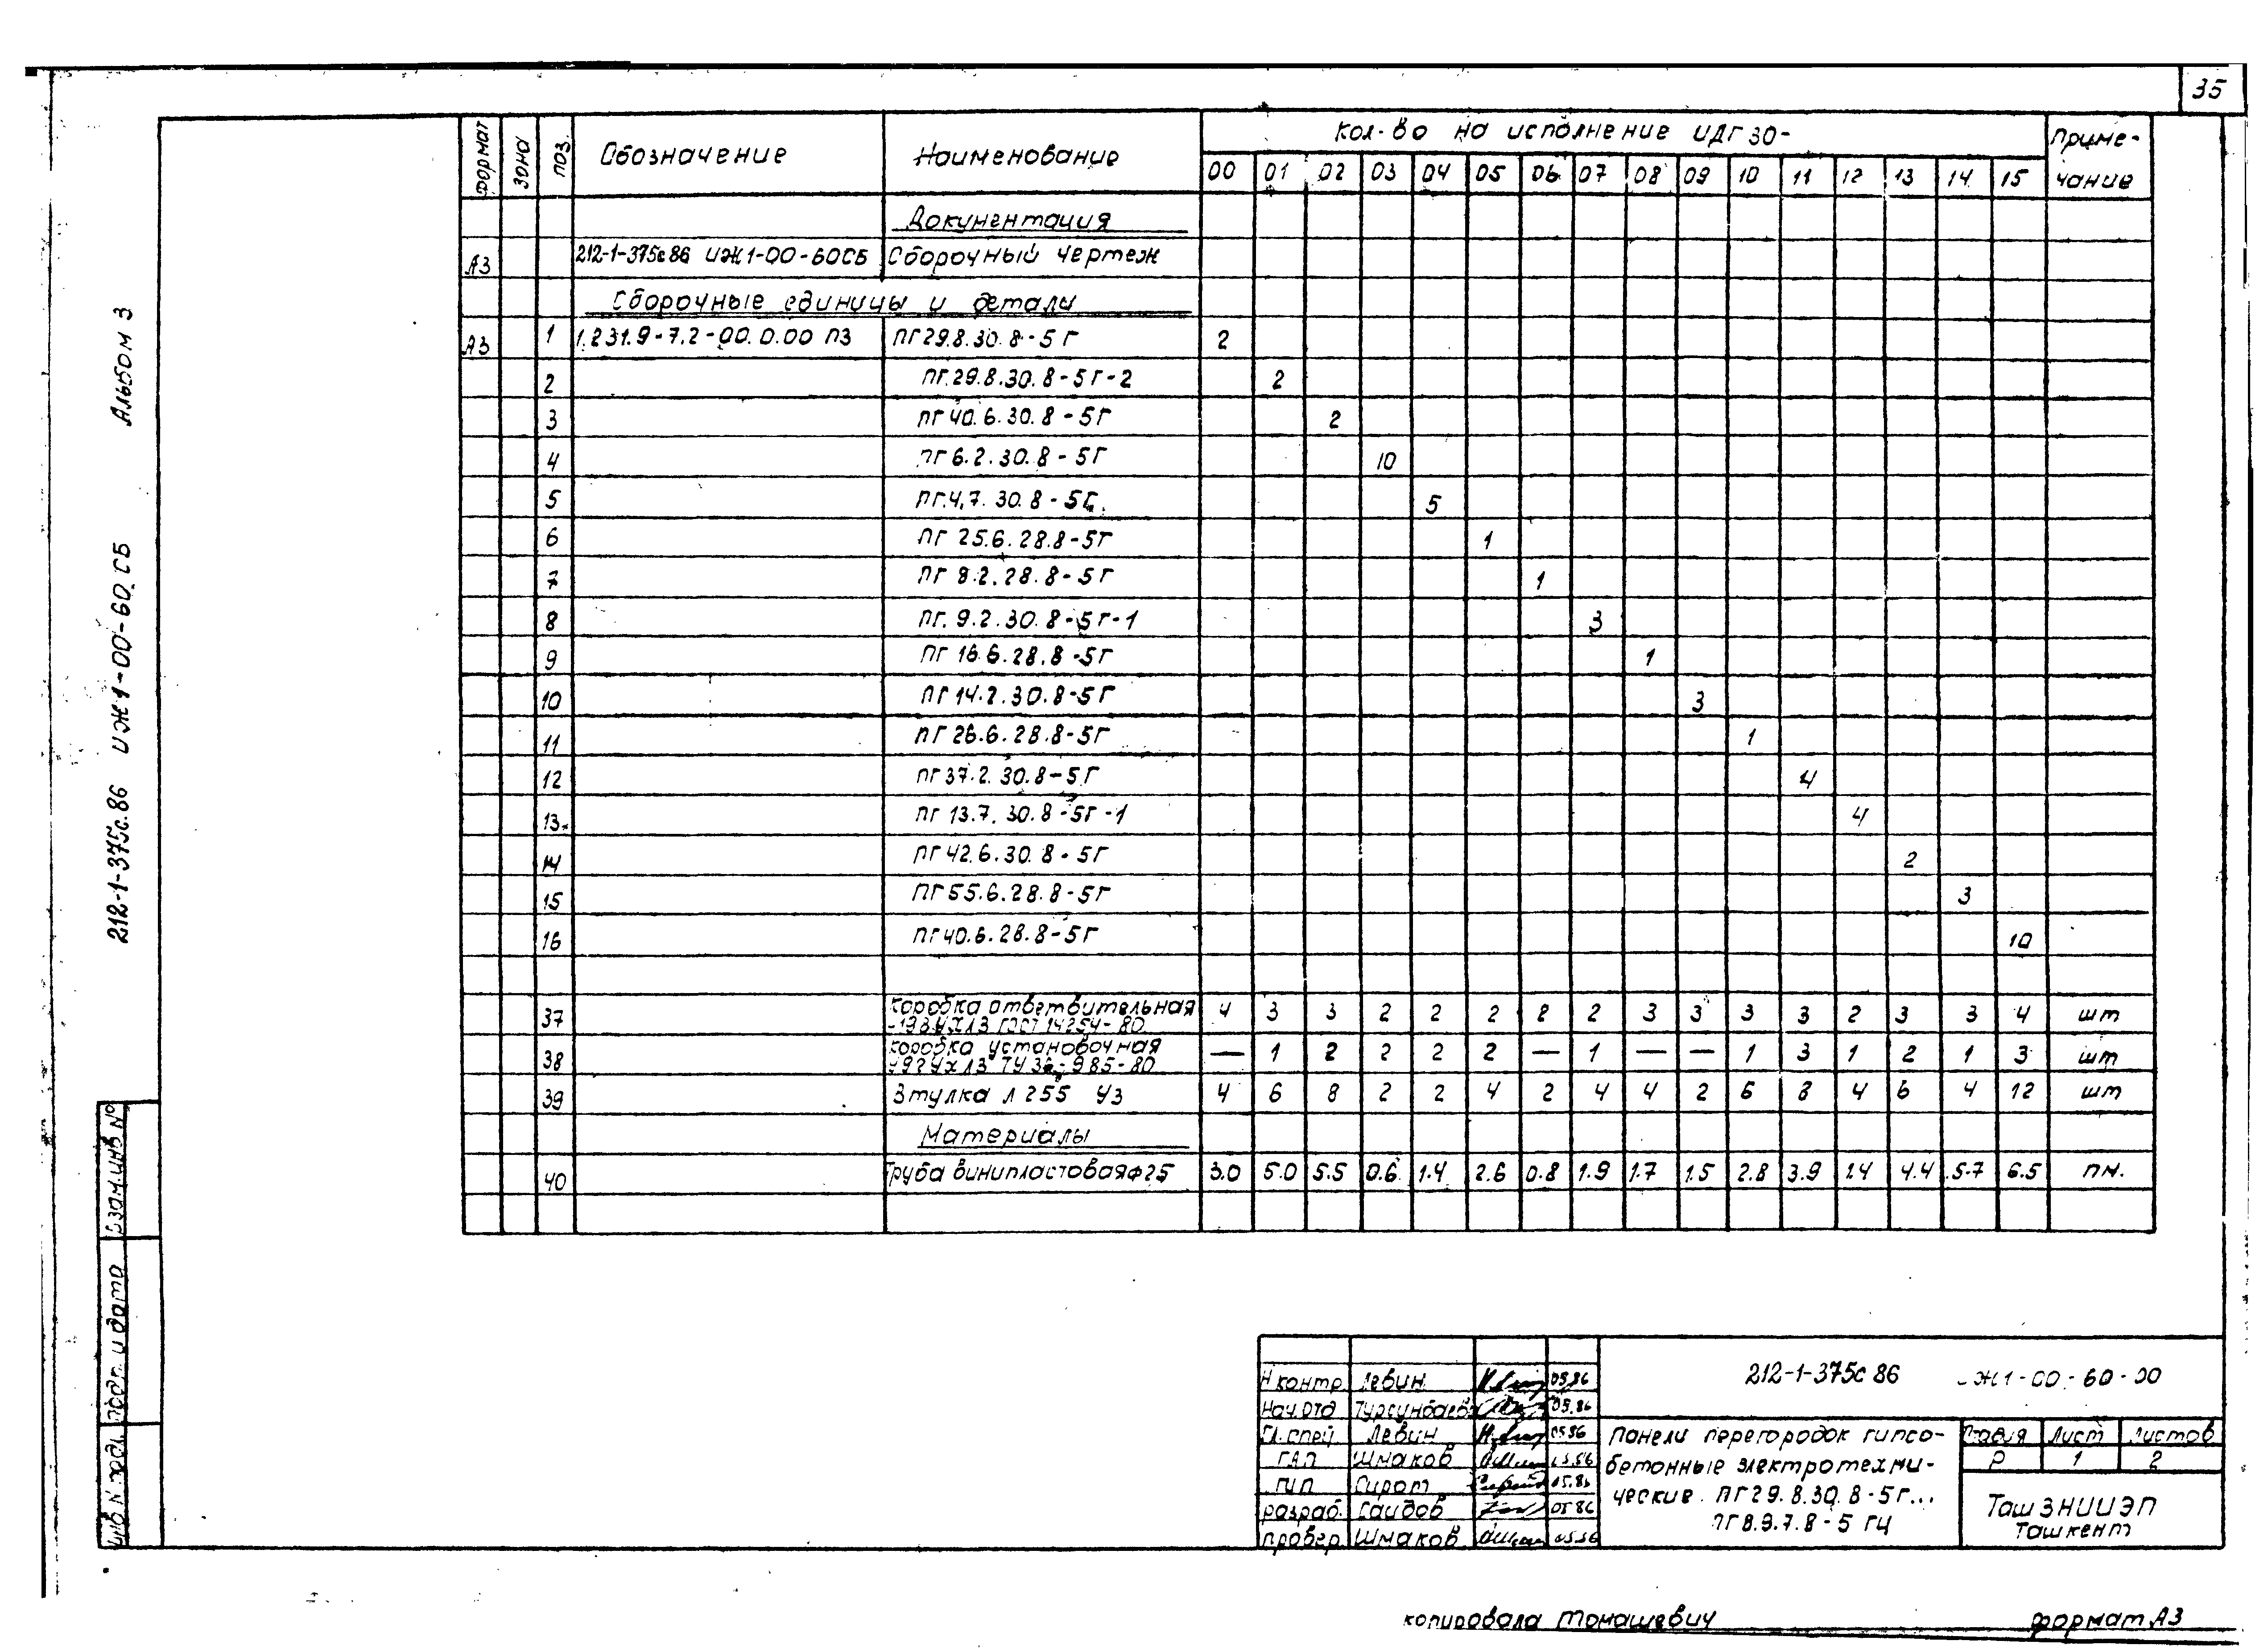 35
ФОРМАТ ЗОНА ПОЗ. Обозначение Наименование Кол-во на исполнение ИДГ30- Приме-чание
00 01 02 03 04 05 06 07 08 09 10 11 12 13 14 15
Документация
А3 212-1-375с86 ИЖ1-00-60СБ Сборочный чертеж
Сборочные единицы и детали
А3 1 1.231.9-7.2-00.0.00 ПЗ ПГ29.8.30.8-5Г 2
2 ПГ.29.8.30.8-5Г-2 2
3 ПГ40.6.30.8-5Г 2
4 ПГ6.2.30.8-5Г 10
5 ПГ.4,7.30.8-5Г. 5
6 ПГ 25.6.28.8-5Г 1
7 ПГ 9.2.28.8-5Г 1
8 ПГ.9.2.30.8-5Г-1 3
9 ПГ 16.6.28.8-5Г 1
10 ПГ14.2.30.8-5Г 3
11 ПГ26.6.28.8-5Г 1
12 ПГ37.2.30.8-5Г 4
13. ПГ 13.7.30.8-5Г-1 4
14 ПГ42.6.30.8-5Г 2
15 ПГ55.6.28.8-5Г 3
16 ПГ40.6.28.8-5Г 10
37 Коробка ответвительная ГОСТ 14254-80 4 3 3 2 2 2 2 2 3 3 3 3 2 3 3 4 шт
38 Коробка установочная ТУ 36-985-80 — 1 2 2 2 2 — 1 — — 1 3 1 2 1 3 шт
39 Втулка Л255 У3 4 6 8 2 2 4 2 4 4 2 6 8 4 6 4 12 шт
Материалы
40 Труба винипластовая Ф25 3.0 5.0 5.5 0.6 1.4 2.6 0.8 1.9 1.7 1.5 2.8 3.9 1.4 4.4 5.7 6.5 пм.
212-1-375с.86 ИЖ1-00-60.СБ Альбом 3
Взам.инв №
Подп. и дата
Инв N подл.
Н контр. Левин 05.86
Нач.отд Турсунбаев 05.86
Гл.спец Левин 05.86
ГАП Шмаков 05.86
ГИП Сирот 05.86
разраб. Саидов 05.86
провер. Шмаков 05.86
212-1-375с 86 ИЖ1-00-60-00
Панели перегородок гипсо-
бетонные электротехни-
ческие. ПГ29.8.30.8-5Г...
ПГ8.9.7.8-5 ГЦ
Стадия Лист Листов
Р 1 2
ТашЗНИИЭП
Ташкент
копировала Томашевич формат А3